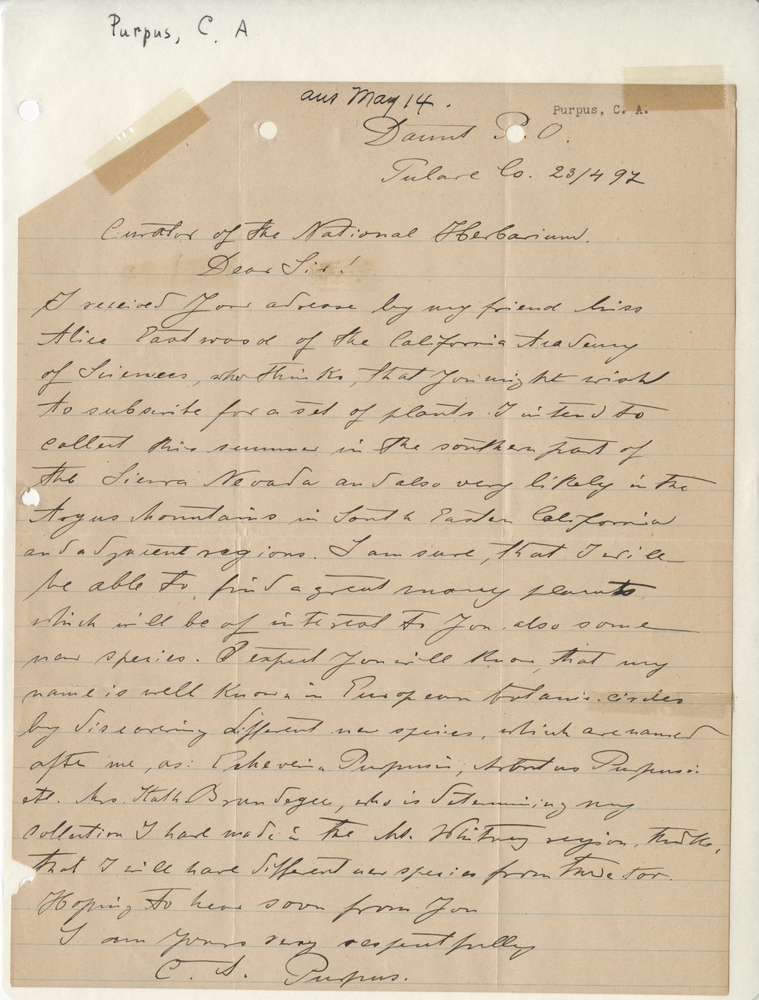 Purpus, C. A
ans May 14.
Purpus, C. A.
Daunt P. O.
Tulare Co. 23/4 97
Curator of the National Herbarium.
Dear Sir!
I received Your adresse by my friend Miss
Alice Eastwood of the California Academy
of Sciences, who thinks, that You might wish
to subscribe for a set of plants. I intend to
collect this summer in the southern part of
the Sierra Nevada and also very likely in the
Argus Mountains in South Easten California
and adjacent regions. I am sure, that I will
be able to find a great many plants
which will be of interest to You also some
new species. I expect You will know that my
name is well known in European botanic. circles
by discovering different new species, which are named
after me, as: Echeveria Purpusii, Arbutus Purpusii
etc. Mrs. Kath Brandegee, who is determining my
collection I have made in the Mt. Whitney region, thinks,
that I will have different new species from there
Hoping to hear soon from You
I am Yours very respectfully
C. A. Purpus.